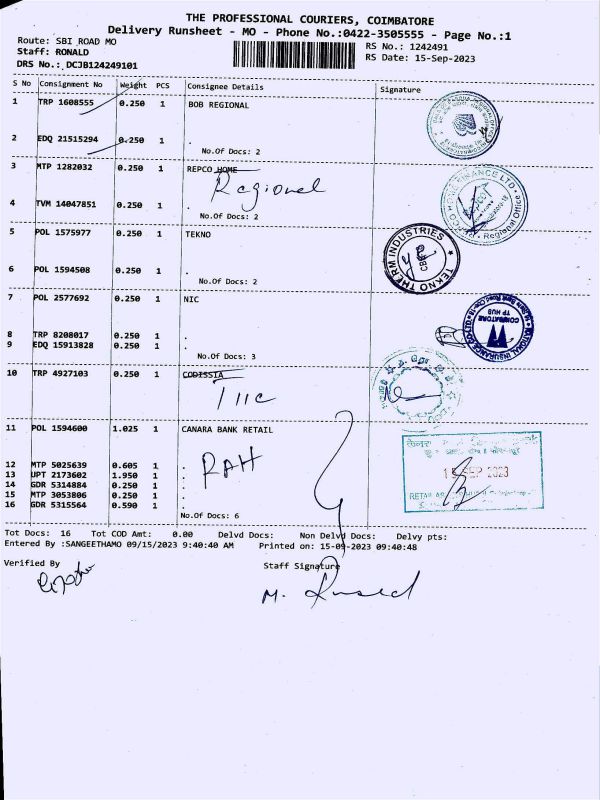 THE PROFESSIONAL COURIERS, COIMBATORE
Delivery Runsheet - MO - Phone No.:0422-3505555 - Page No.:1
Route: SBI ROAD MO
Staff: RONALD
DRS No.: DCJB124249101
RS No.: 1242491
RS Date: 15-Sep-2023
S No Consignment No Weight PCS Consignee Details Signature
1 TRP 1608555 0.250 1 BOB REGIONAL
2 EDQ 21515294 0.250 1 .
No.Of Docs: 2
3 MTP 1282032 0.250 1 REPCO HOME
Regional
4 TVM 14047851 0.250 1 .
No.Of Docs: 2
HOME FINANCE LTD.
Regional Office
5 POL 1575977 0.250 1 TEKNO
6 POL 1594508 0.250 1 .
No.Of Docs: 2
TEKNO THERM INDUSTRIES
CBE
7 POL 2577692 0.250 1 NIC
8 TRP 8208017 0.250 1 .
9 EDQ 15913828 0.250 1 .
No.Of Docs: 3
NATIONAL INSURANCE
COIMBATORE
TP HUB
10 TRP 4927103 0.250 1 CODISSIA
TIIC
11 POL 1594600 1.025 1 CANARA BANK RETAIL
12 MTP 5025639 0.605 1 .
RAH
13 UPT 2173602 1.950 1 .
14 GDR 5314884 0.250 1 .
15 MTP 3053806 0.250 1 .
16 GDR 5315564 0.590 1 .
No.Of Docs: 6
15 SEP 2023
RETAIL
Tot Docs: 16 Tot COD Amt: 0.00 Delvd Docs: Non Delvd Docs: Delvy pts:
Entered By :SANGEETHAMO 09/15/2023 9:40:40 AM Printed on: 15-09-2023 09:40:48
Verified By
Staff Signature